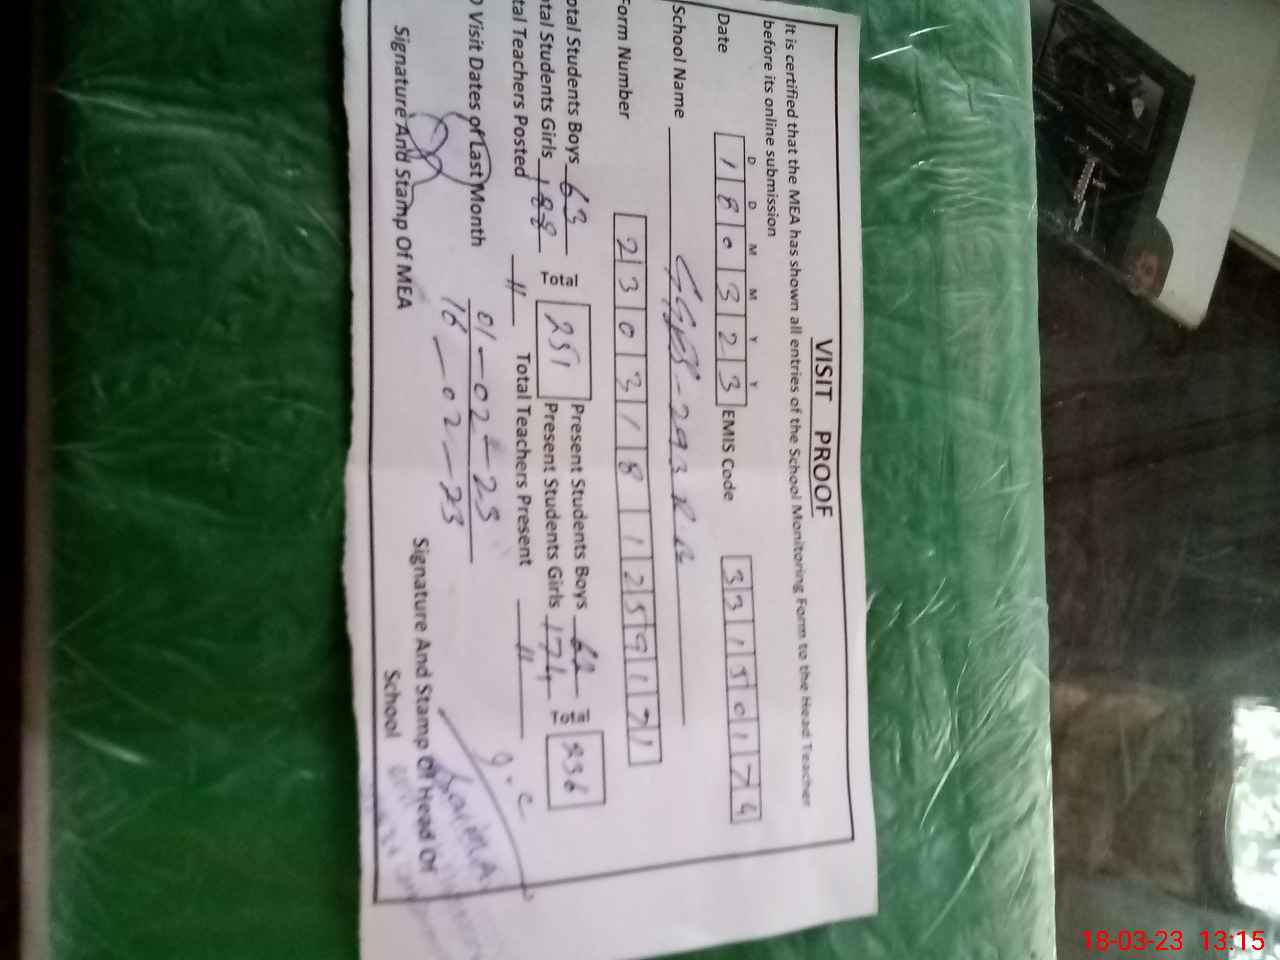 VISIT PROOF
It is certified that the MEA has shown all entries of the School Monitoring Form to the Head Teacher
before its online submission
D D M M Y Y
Date 180323 EMIS Code 33150174
School Name GGPS-293 RB
Form Number 2303181259171
otal Students Boys 63 Total 251 Present Students Boys 62 Total 236
tal Students Girls 188 Present Students Girls 174
tal Teachers Posted 11 Total Teachers Present 11
Visit Dates of Last Month 01-02-23
16-02-23
Signature And Stamp Of MEA
Signature And Stamp Of Head Of
School
18-03-23 13:15